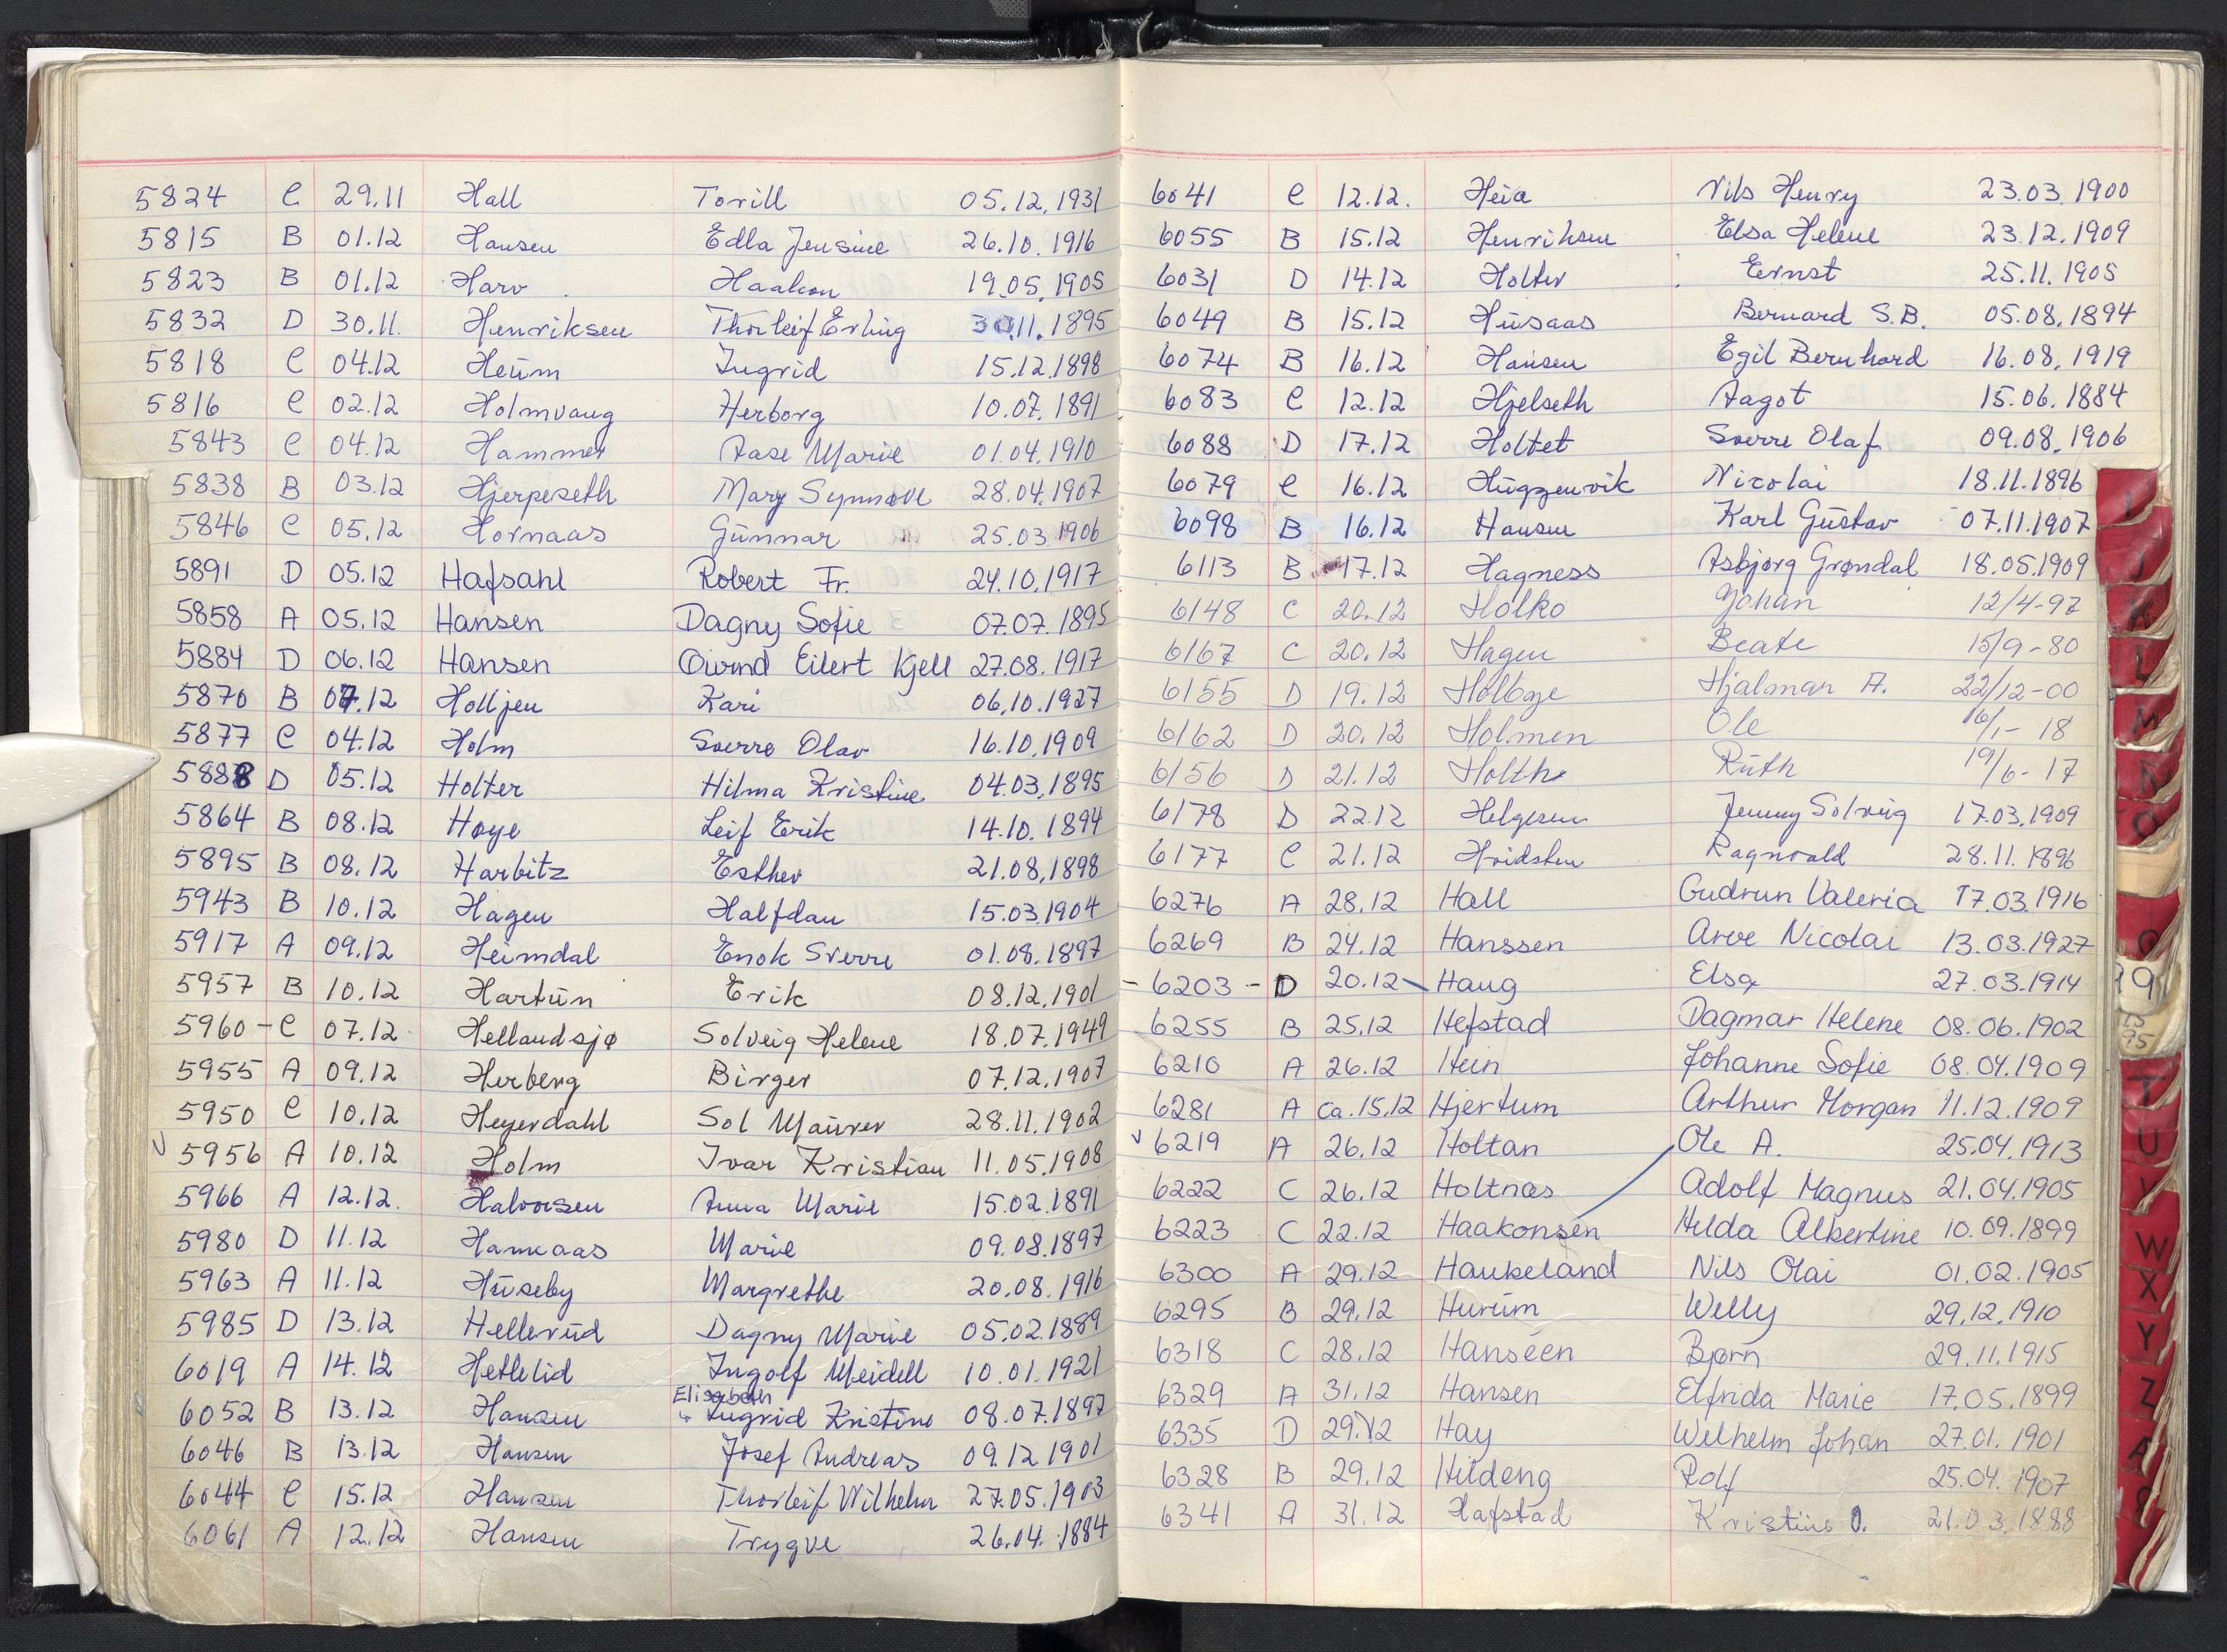 5824 C 29.11 Hall Torill 05.12.1931
5815 B 01.12 Hansen Edla Jensine 26.10.1916
5823 B 01.12 Harv Haakon 19.05.1905
5832 D 30.11. Henriksen Thorleif Erling 30.11.1895
5818 C 04.12 Heům Ingrid 15.12.1898
5816 C 02.12 Holmvang Herborg 10.07.1891
5843 C 04.12 Hammer Aase Marie 01.04.1910
5838 B 03.12 Hjerpeseth Mary Synnøve 28.04.1907
5846 C 05.12 Hornaas Gunnar 25.03.1906
5891 D 05.12 Hafsahl Robert Fr. 24.10.1917
5858 A 05.12 Hansen Dagny Sofie 07.07.1895
5884 D 06.12 Hansen Øivind Eilert Kjell 27.08.1917
5870 B 07.12 Holljen Kari 06.10.1927
5877 C 04.12 Holm Sverre Olav 16.10.1909
5888 D 05.12 Holter Hilma Kristine 04.03.1895
5864 B 08.12 Høye Leif Erik 14.10.1894
5895 B 08.12 Harbitz Esther 21.08.1898
5943 B 10.12 Hagen Halfdan 15.03.1904
5917 A 09.12 Heimdal Enok Sverre 01.08.1897
5957 B 10.12 Hartun Erik 08.12.1901
5960 - C 07.12 Hellandsjø Solveig Helene 18.07.1949
5955 A 09.12 Herberg Birger 07.12.1907
5950 C 10.12 Heyerdahl Sol Maurer 28.11.1902
v 5956 A 10.12 Holm Ivar Kristian 11.05.1908
5966 A 12.12. Halvorsen Anna Marie 15.02.1891
5980 D 11.12 Hameaas Marie 09.08.1897
5963 A 11.12 Huseby Margrethe 20.08.1916
5985 D 13.12 Hellerud Dagny Marie 05.02.1889
6019 A 14.12 Hetlelid Ingolf Meidell 10.01.1921
Elisabeth
6052 B 13.12 Hansen Ingrid Kristine 08.07.1897
6046 B 13.12 Hansen Josef Andreas 09.12.1901
6044 C 15.12 Hansen Thorleif Wilhelm 27.05.1903
6061 A 12.12 Hansen Trygve 26.04.1884
6041 C 12.12. Heia Nils Henry 23.03.1900
6055 B 15.12 Henriksen Elsa Helene 23.12.1909
6031 D 14.12 Holter Ernst 25.11.1905
6049 B 15.12 Husaas Bernard S.B. 05.08.1894
6074 B 16.12 Hansen Egil Bernhard 16.08.1919
6083 C 12.12 Hjelseth Aagot 15.06.1884
6088 D 17.12 Holtet Sverre Olaf 09.08.1906
6079 C 16.12 Huggenvik Nicolai 18.11.1896
6098 B 16.12 Hansen Karl Gustav 07.11.1907
6113 B 17.12 Hagness Asbjørg Grøndal 18.05.1909
6148 C 20.12 Holko Johan 12/4-97
6167 C 20.12 Hagen Beate 15/9-80
6155 D 19.12 Holbye Hjalmar A. 22/12-00
6162 D 20.12 Holmen Ole 16/1-18
6156 D 21.12 Holthe Ruth 19/6-17
6178 D 22.12 Helgesen Jenny Solveig 17.03.1909
6177 C 21.12 Hvidsten Ragnvald 28.11.1896
6276 A 28.12 Hall Gudrun Valeria 17.03.1916
6269 B 24.12 Hanssen Arve Nicolai 13.03.1927
- 6203 - D 20.12 Haug Elsa 27.03.1914
6255 B 25.12 Hefstad Dagmar Helene 08.06.1902
6210 A 26.12 Hein Johanne Sofie 08.04.1909
6281 A ca.15.12 Hjertum Arthur Morgan 11.12.1909
v 6219 A 26.12 Holtan Ole A. 25.04.1913
6222 C 26.12 Holtnæs Adolf Magnus 21.04.1905
6223 C 22.12 Haakonsen Helda Albertine 10.09.1899
6300 A 29.12 Haukeland Nils Olai 01.02.1905
6295 B 29.12 Hurum Welly 29.12.1910
6318 C 28.12 Hanséen Bjørn 29.11.1915
6329 A 31.12 Hansen Elfrida Marie 17.05.1899
6335 D 29.12 Hay Wilhelm Johan 27.01.1901
6328 B 29.12 Hildeng Rolf 25.04.1907
6341 A 31.12 Hafstad Kristine O. 21.03.1888
I
J
K
L
M
N
O
T
U
V
W
X
Y
Z